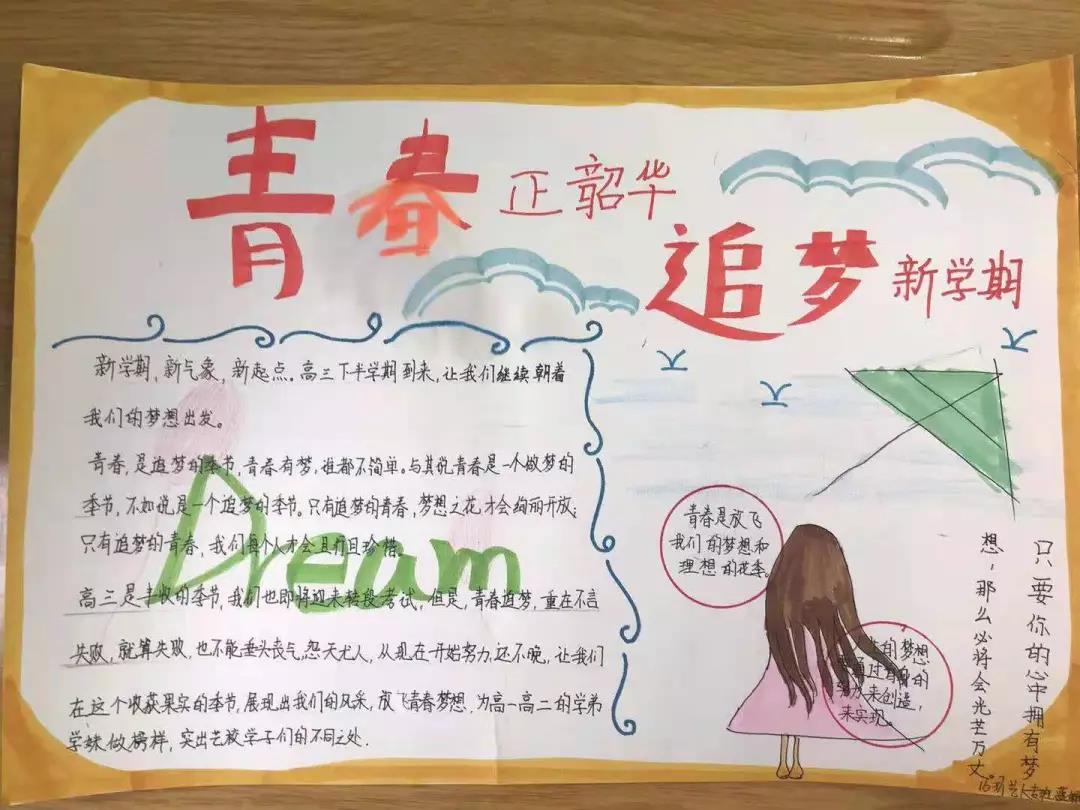 青春正韶华
追梦新学期
新学期，新气象，新起点。高三下半学期到来，让我们继续朝着
我们的梦想出发。
青春，是追梦的季节，青春有梦，谁都不简单。与其说青春是一个做梦的
季节，不如说是一个追梦的季节。只有追梦的青春，梦想之花才会绚丽开放；
只有追梦的青春，我们每个人才会且行且珍惜。
Dream
高三是丰收的季节，我们也即将迎来转段考试，但是，青春追梦，重在不言
失败，就算失败，也不能垂头丧气，怨天尤人，从现在开始努力，还不晚，让我们
在这个收获果实的季节，展现出我们的风采，放飞青春梦想，为高一高二的学弟
学妹做榜样，突出艺校学子们的不同之处.
青春是放飞
我们的梦想和
理想的花季。
的梦想
通过自身的
努力来创造，
来实现。
只要你的心中拥有梦
想，那么必将会光芒万丈。